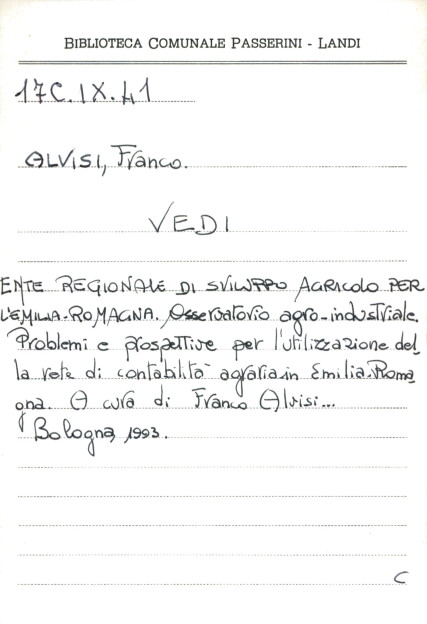 BIBLIOTECA COMUNALE PASSERINI - LANDI
17C.IX.41
ALVISI, Franco.
VEDI
ENTE REGIONALE DI SVILUPPO AGRICOLO PER
L'EMILIA-ROMAGNA. Osservatorio agro-industriale.
Problemi e prospettive per l'utilizzazione del
la rete di contabilità agraria in Emilia-Roma
gna. A cura di Franco Alvisi...
Bologna, 1993.
C